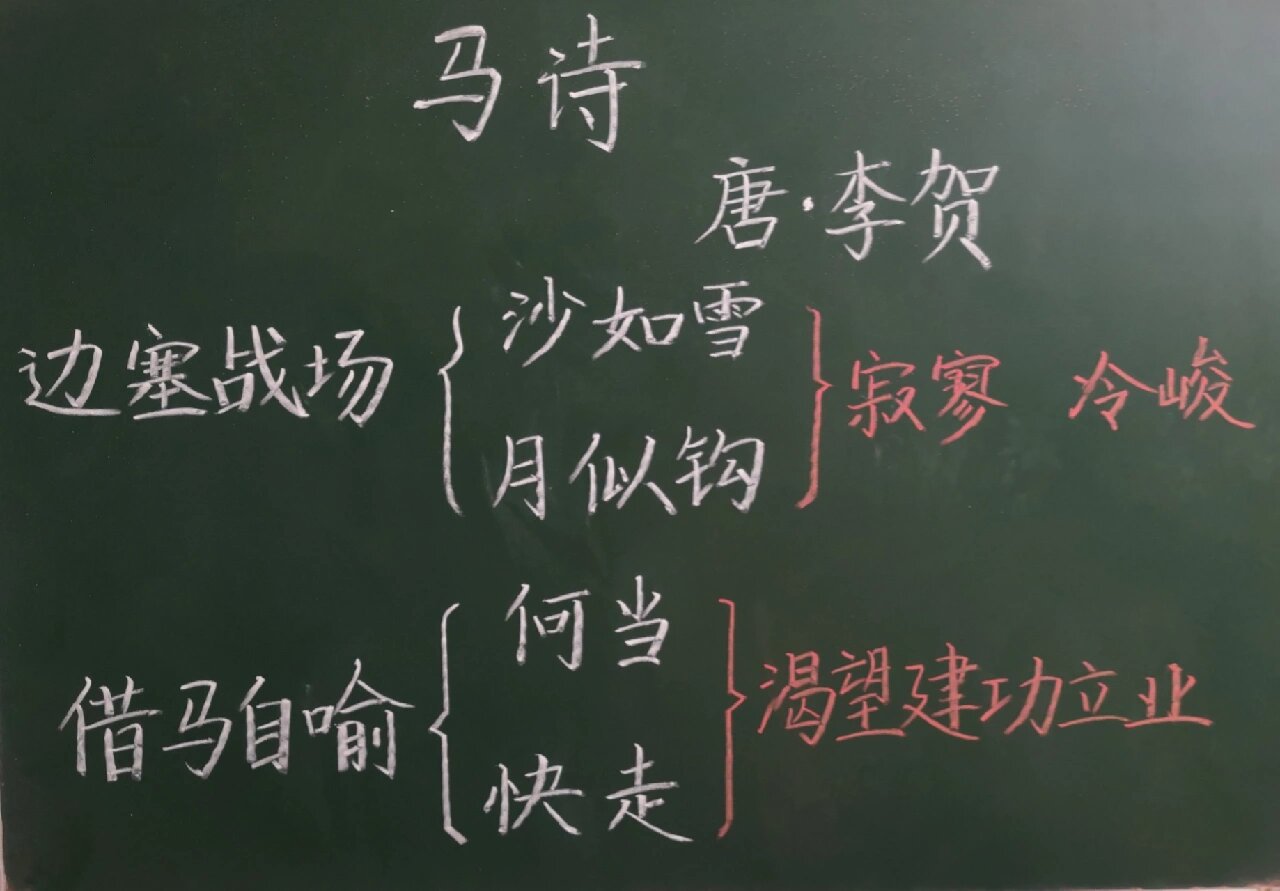 马诗
唐·李贺
边塞战场
沙如雪
月似钩
寂寥 冷峻
借马自喻
何当
快走
渴望建功立业